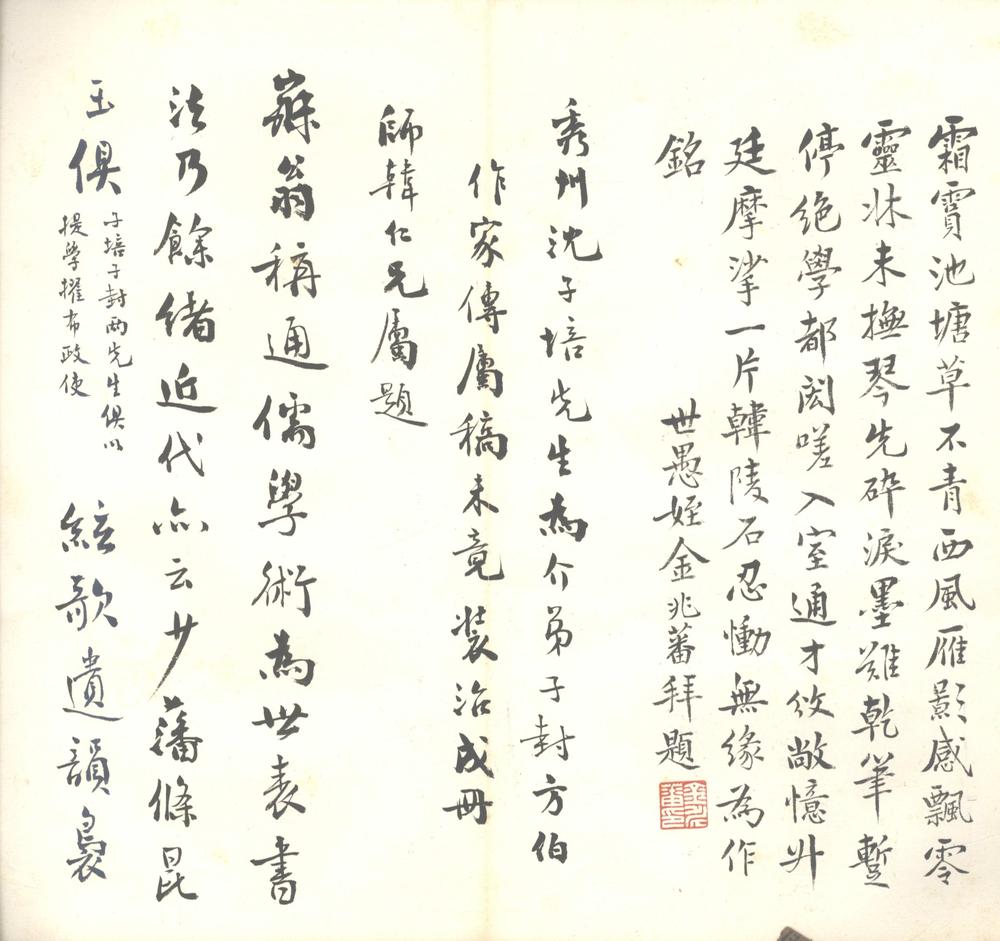 霜霣池塘草不青西風雁影感飄零
靈牀未撫琴先碎淚墨難乾筆蹔
停絕學都閎嗟入室通才攸敞憶升
廷摩挲一片韓陵石忍慟無緣為作
銘
世愚姪金兆蕃拜題
金兆蕃印
秀州沈子培先生為介弟子封方伯
作家傳屬稿未竟裝治成冊
師韓仁兄屬題
寐翁稱通儒學術為世表書
法乃餘緒近代亦云少藩條昆
玉俱
子培子封兩先生俱以
提學擢布政使
絃歌遺韻裊